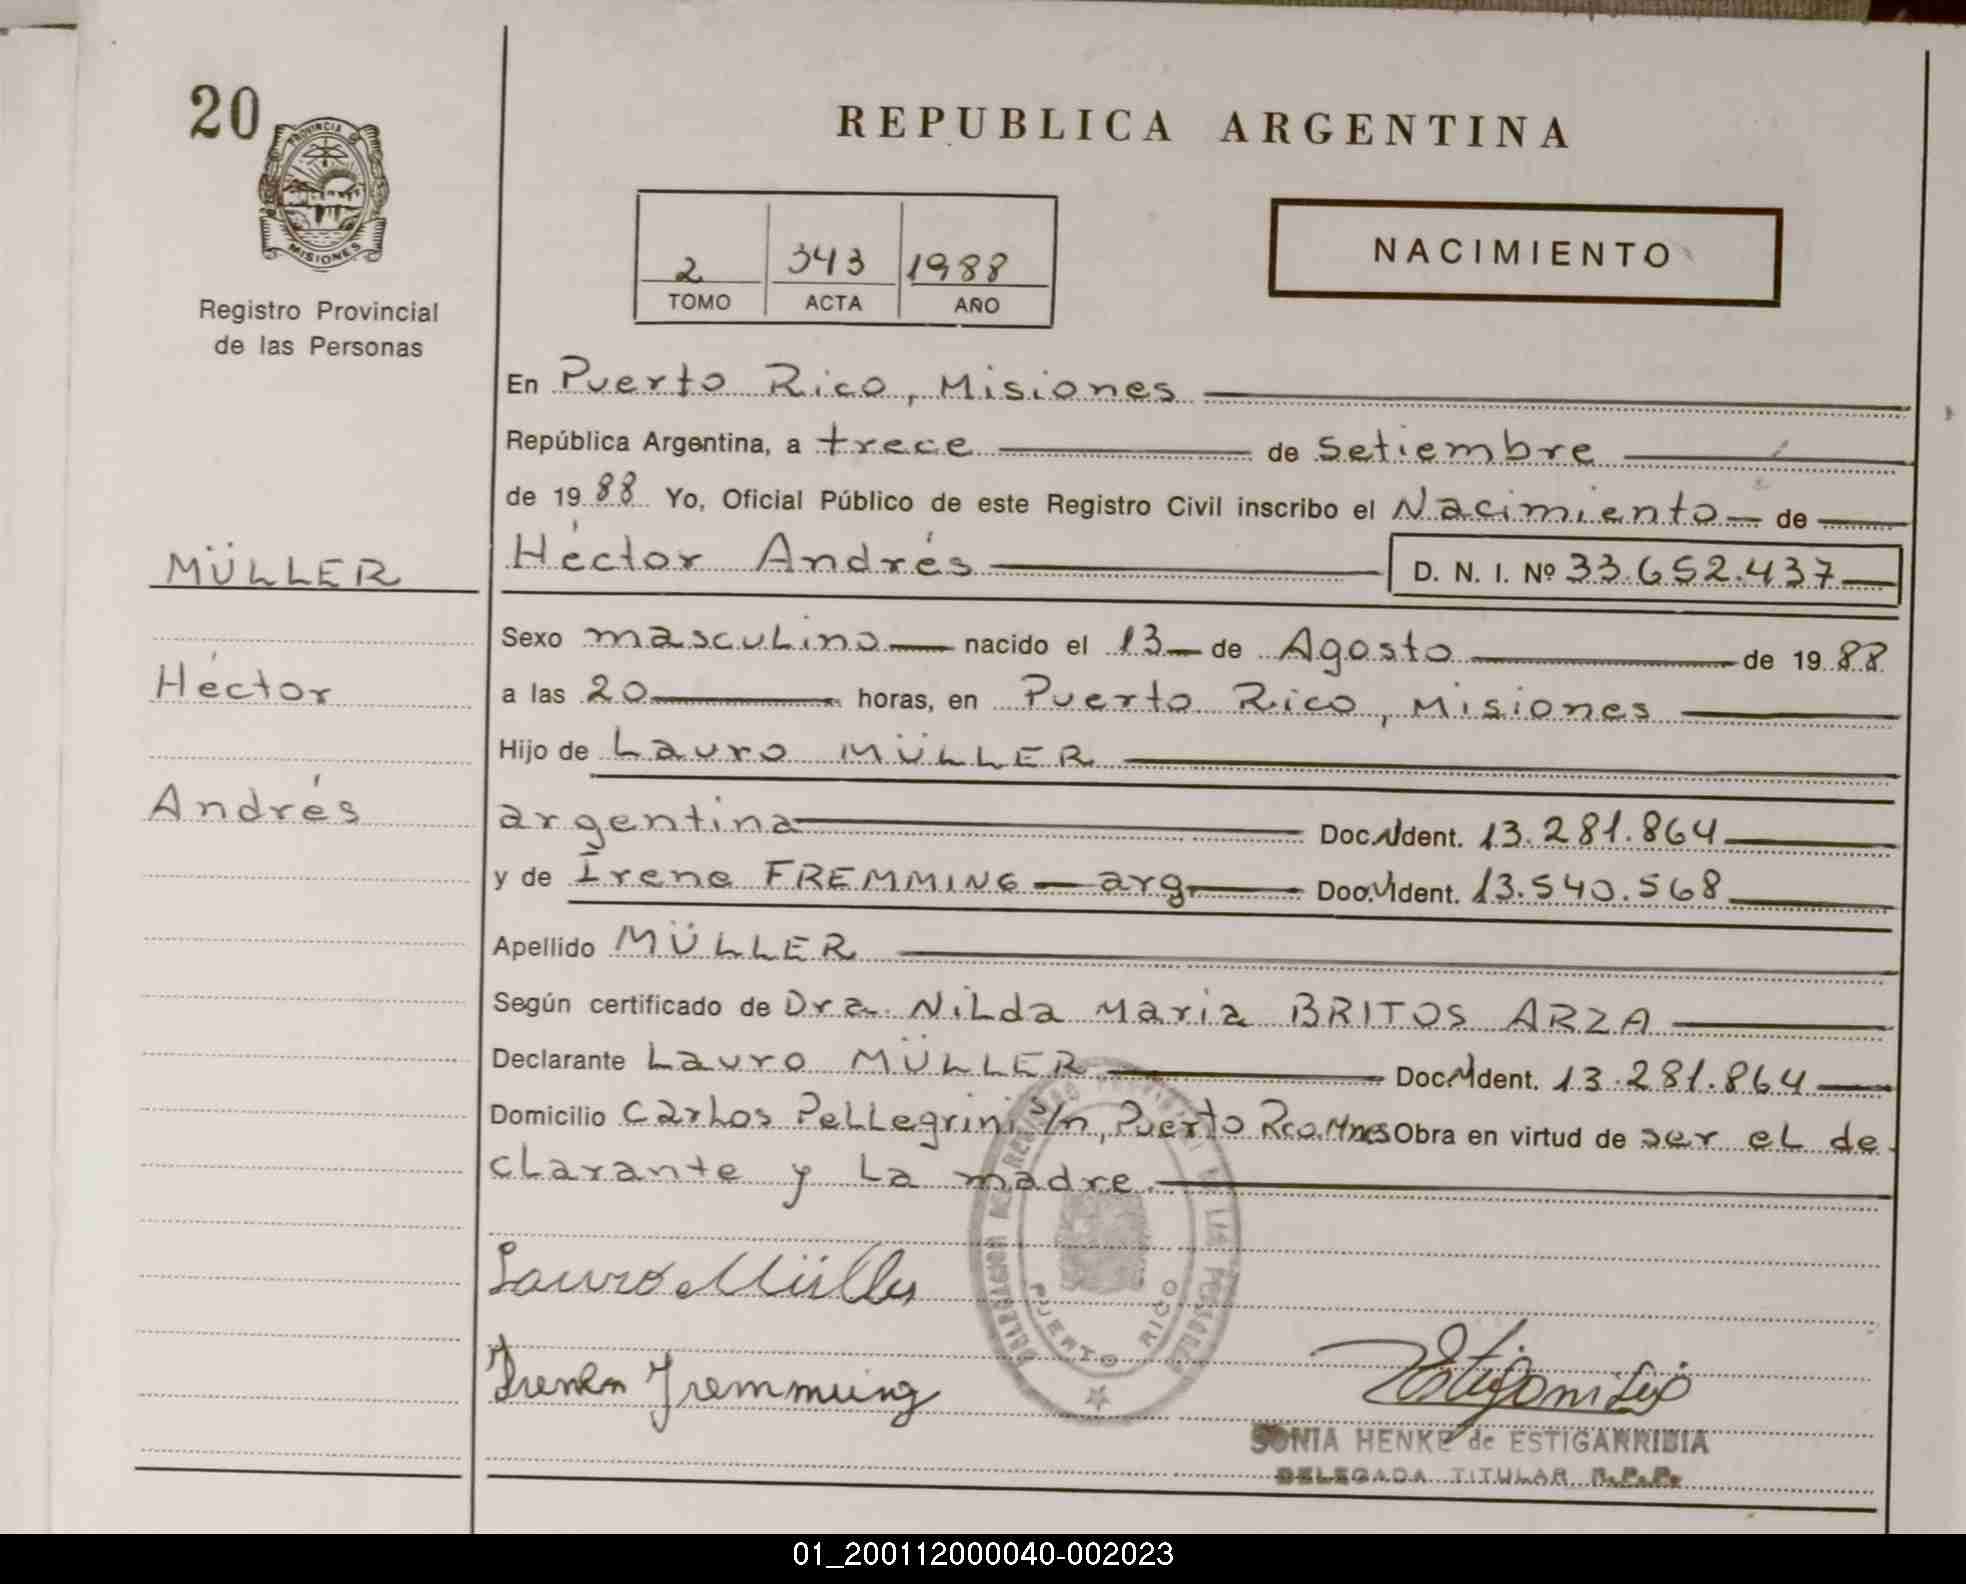 20
PROVINCIA DE
MISIONES
Registro Provincial
de las Personas
REPUBLICA ARGENTINA
2 343 1988
TOMO ACTA AÑO
NACIMIENTO
En Puerto Rico, Misiones
República Argentina, a trece de setiembre
de 19 88 Yo, Oficial Público de este Registro Civil inscribo el Nacimiento de
MÜLLER
Héctor Andrés D. N. I. Nº 33.652.437
Sexo masculino nacido el 13 de Agosto de 19 88
Héctor
a las 20 horas, en Puerto Rico, Misiones
Hijo de Lauro MÜLLER
Andrés
argentina Doc. Ident. 13.281.864
y de Irene FREMMING arg. Doc. Ident. 13.540.568
Apellido MÜLLER
Según certificado de Dra. Nilda Maria BRITOS ARZA
Declarante Lauro MÜLLER Doc. Ident. 13.281.864
Domicilio Carlos Pellegrini s/n, Puerto Rco. Mnes Obra en virtud de ser el de
clarante y la madre.
Lauro Müller
PUERTO RICO
Fremming
SONIA HENKE de ESTIGARRIBIA
DELEGADA TITULAR R.P.P.
01_200112000040-002023